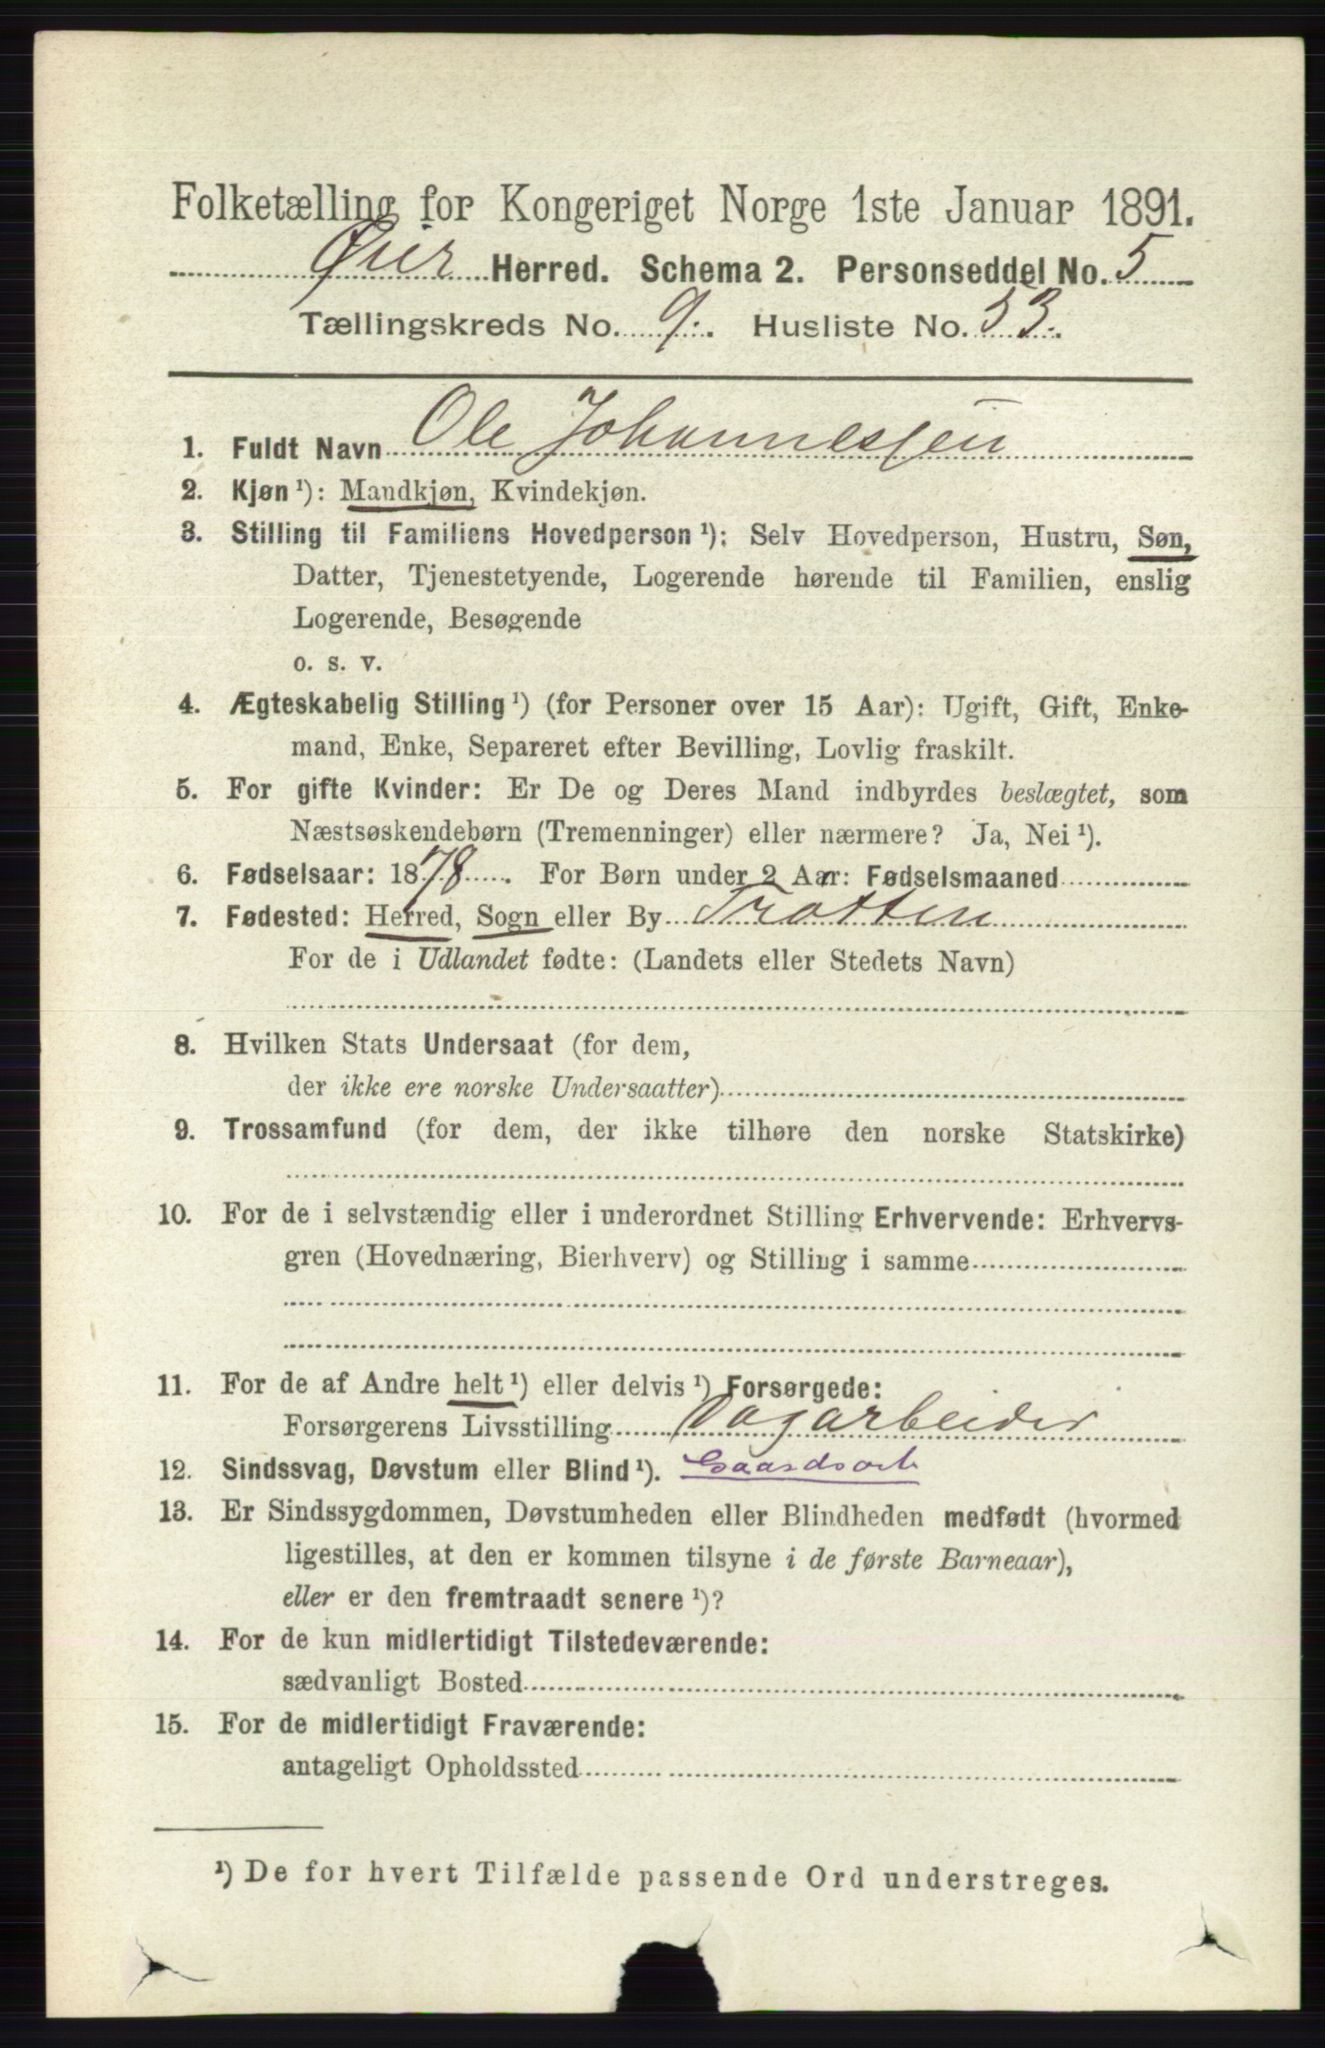 Folketælling for Kongeriget Norge 1ste Januar 1891.
Øier Herred. Schema 2. Personseddel No. 5
Tællingskreds No. 9. Husliste No. 53.
1. Fuldt Navn Ole Johannessen
2. Kjøn ¹): Mandkjøn, Kvindekjøn.
3. Stilling til Familiens Hovedperson ¹): Selv Hovedperson, Hustru, Søn,
Datter, Tjenestetyende, Logerende hørende til Familien, enslig
Logerende, Besøgende
o. s. v.
4. Ægteskabelig Stilling ¹) (for Personer over 15 Aar): Ugift, Gift, Enke-
mand, Enke, Separeret efter Bevilling, Lovlig fraskilt.
5. For gifte Kvinder: Er De og Deres Mand indbyrdes beslægtet, som
Næstsøskendebørn (Tremenninger) eller nærmere? Ja, Nei ¹).
6. Fødselsaar: 1878. For Børn under 2 Aar: Fødselsmaaned
7. Fødested: Herred, Sogn eller By Trotten
For de i Udlandet fødte: (Landets eller Stedets Navn)
8. Hvilken Stats Undersaat (for dem,
der ikke ere norske Undersaatter)
9. Trossamfund (for dem, der ikke tilhøre den norske Statskirke)
10. For de i selvstændig eller i underordnet Stilling Erhvervende: Erhvervs-
gren (Hovednæring, Bierhverv) og Stilling i samme
11. For de af Andre helt ¹) eller delvis ¹) Forsørgede:
Forsørgerens Livsstilling Dagarbeider
12. Sindssvag, Døvstum eller Blind ¹). Gaardsarb
13. Er Sindssygdommen, Døvstumheden eller Blindheden medfødt (hvormed
ligestilles, at den er kommen tilsyne i de første Barneaar),
eller er den fremtraadt senere ¹)?
14. For de kun midlertidigt Tilstedeværende:
sædvanligt Bosted
15. For de midlertidigt Fraværende:
antageligt Opholdssted
¹) De for hvert Tilfælde passende Ord understreges.